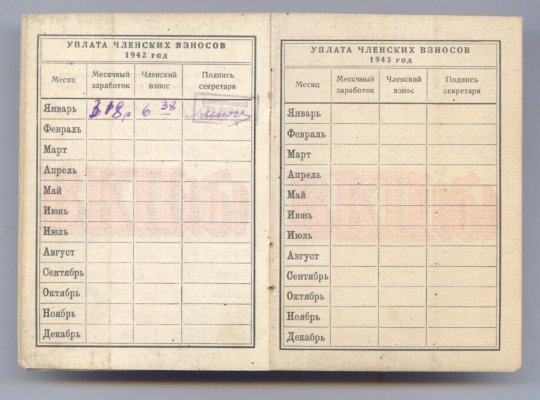 УПЛАТА ЧЛЕНСКИХ ВЗНОСОВ
1942 год
Месяц Месячный заработок Членский взнос Подпись секретаря
Январь 318р 6 38
Февраль
Март
Апрель
Май
Июнь
Июль
Август
Сентябрь
Октябрь
Ноябрь
Декабрь
УПЛАТА ЧЛЕНСКИХ ВЗНОСОВ
1943 год
Месяц Месячный заработок Членский взнос Подпись секретаря
Январь
Февраль
Март
Апрель
Май
Июнь
Июль
Август
Сентябрь
Октябрь
Ноябрь
Декабрь